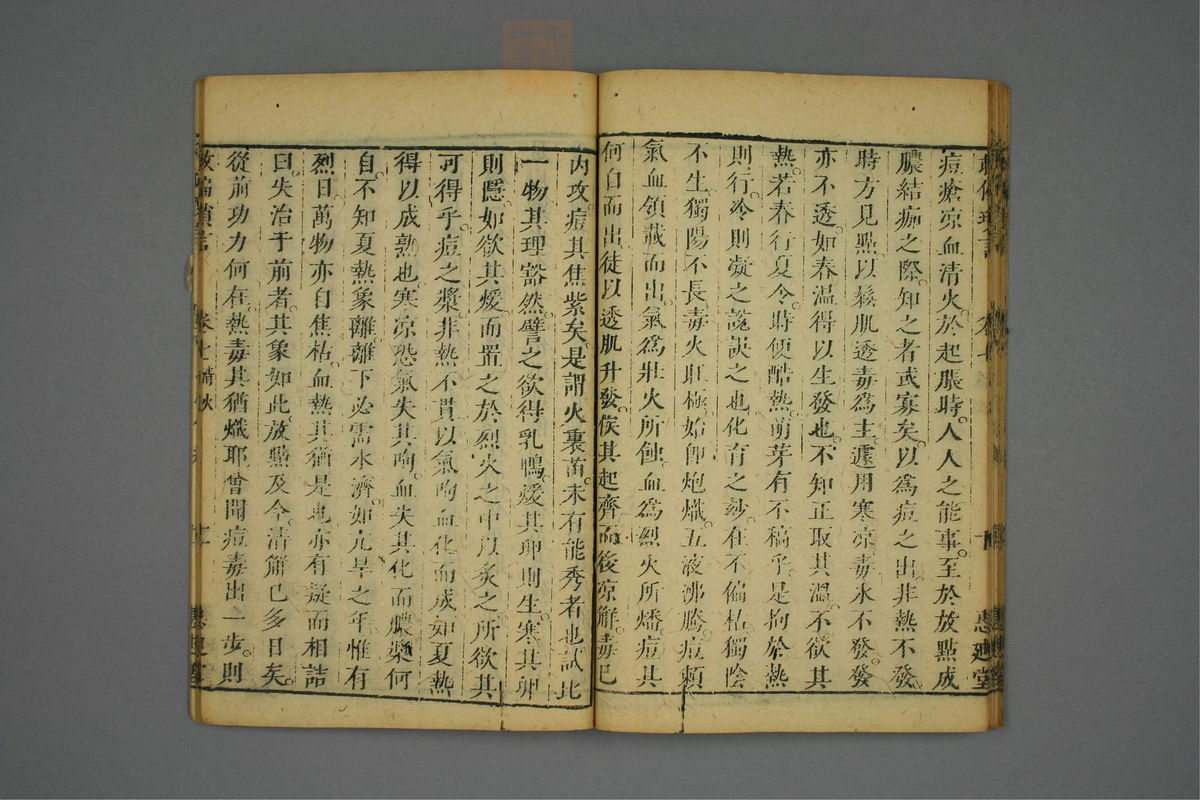 痘瘡凉血清火於起脹時人人之能事至於放點成
膿結痂之際知之者或寡矣以為痘之出非熱不發
時方見點以鬆肌透毒為主遽用寒凉毒氷不發發
亦不透如春温得以生發也不知正取其溫不欲其
熱若春行夏令時便酷熱萌芽有不稿乎是拘於熱
則行冷則凝之說誤之也化育之玅在不偏枯獨陰
不生獨陽不長毒火旺極始卽炮熾五液沸騰痘頼
氣血領載而出氣為壯火所蝕血為烈火所燔痘其
何自而出徒以透肌升發俟其起齊而後凉解毒已
内攻痘其焦紫矣是謂火裏苗未有能秀者也試比
一物其理豁然譬之欲得乳鴨煖其卵則生寒其卵
則隱如欲其煖而置之於烈火之中以炙之所欲其
可得乎痘之漿非熱不貫以氣呴血化而成如夏熱
得以成熟也寒凉恐氣失其呴血失其化而膿漿何
自不知夏熱象離離下必需水濟如亢旱之年惟有
烈日萬物亦自焦枯血熱其猶是也亦有疑而相詰
曰失治于前者其象如此放點及今清解已多日矣
從前功力何在熱毒其猶熾耶曾聞痘毒出一步則
救偏瑣言
卷七備
慧迪堂